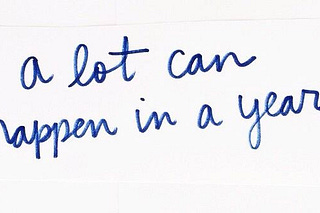 a lot can
happen in a year